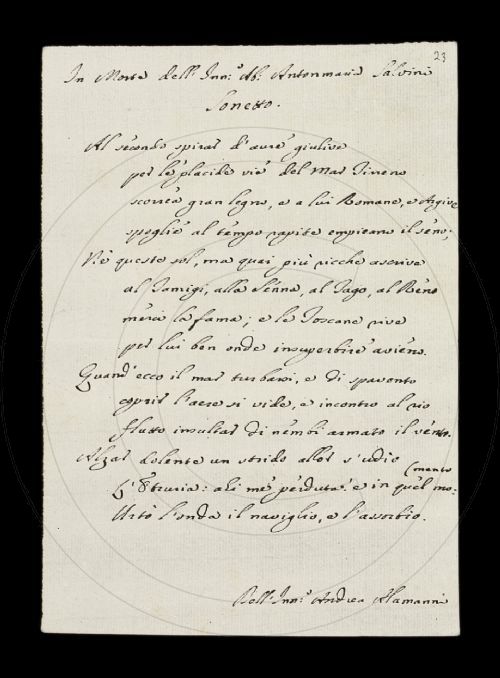 23
In Morte dell' Inn.º Ab. Antonmaria Salvini
Sonetto.
Al secondo spirar d'aure giulive
per le placide vie del Mar Tirreno
scorrea gran legno, e a lui Romane, e Argive
spoglie al tempo rapite empieano il seno;
Nè queste sol, ma quai più ricche ascrive
al Tamigi, alla Senna, al Tago, al Reno
merci la fama; e le Toscane rive
per lui ben onde insuperbire avieno.
Quand' ecco il mar turbarsi, e di spavento
coprir l'aere si vide, e incontro al rio
flutto insultar di nembi armato il vento.
Alzar dolente un strido allor s'udio
L'Etruria: ahi me perduta! e in quel mo-
(mento
Urtò l'onda il naviglio, e l'assorbio.
Dell' Inn.º Andrea Alamanni